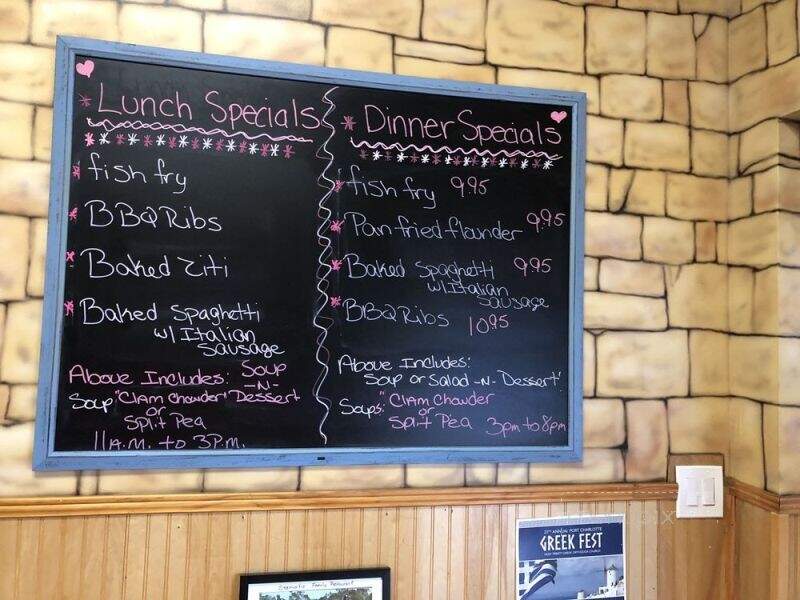 Lunch Specials
fish fry
BBQ Ribs
Baked Ziti
Baked Spaghetti
w/ Italian
Sausage
Above Includes: Soup
-N-
Soup "Clam Chowder" Dessert
or
Split Pea
11A.M. to 3P.m.
Dinner Specials
fish fry 9.95
Pan fried flounder 9.95
Baked Spaghetti 9.95
w/ Italian
Sausage
BBQ Ribs 10.95
Above Includes:
Soup or Salad -N- Dessert!
Soups: "Clam Chowder
or
Split Pea 3pm to 8pm
GREEK FEST